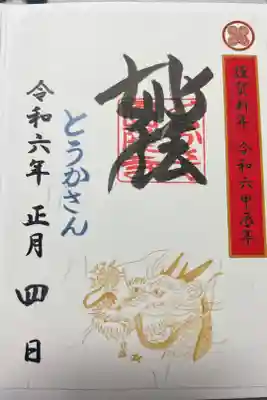 謹賀新年 令和六甲辰年
妙法
とうかさん
令和六年 正月 四 日